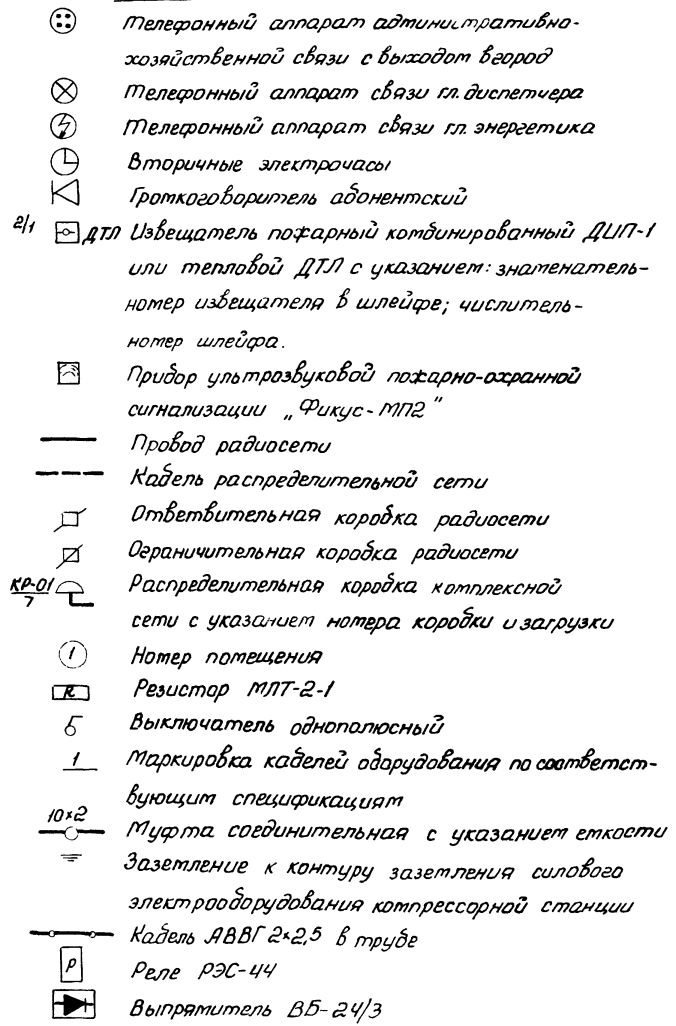 Телефонный аппарат административно-
хозяйственной связи с выходом в город
Телефонный аппарат связи гл. диспетчера
Телефонный аппарат связи гл. энергетика
Вторичные электрочасы
Громкоговоритель абонентский
2/1 ДТЛ Извещатель пожарный комбинированный ДИП-1
или тепловой ДТЛ с указанием: знаменатель-
номер извещателя в шлейфе; числитель-
номер шлейфа.
Прибор ультрозвуковой пожарно-охранной
сигнализации „Фикус-МП2"
Провод радиосети
Кабель распределительной сети
Ответвительная коробка радиосети
Ограничительная коробка радиосети
КР-01 Распределительная коробка комплексной
7 сети с указанием номера коробки и загрузки
1 Номер помещения
R Резистор МЛТ-2-1
Выключатель однополюсный
1 Маркировка кабелей оборудования по соответст-
вующим спецификациям
10×2 Муфта соединительная с указанием емкости
Заземление к контуру заземления силового
электрооборудования компрессорной станции
Кабель АВВГ 2×2,5 в трубе
Р Реле РЭС-44
Выпрямитель ВБ-24/3